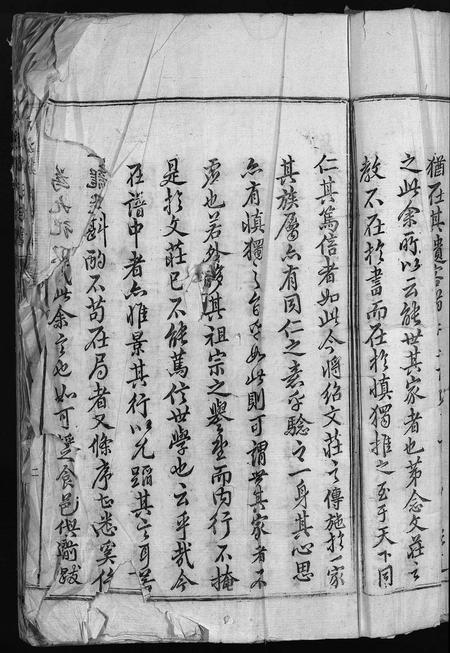 猶在其遺
之此余所以云能世其家者也第念文莊之
教不在於書而在於慎獨推之至于天下同
仁其篤信者如此今將紹文莊之傳施於家
其族屬亦有同仁之意乎驗之一身其心思
亦有慎獨之如此則可謂世其家者不
虛也若外誇其祖宗之譽而內行不掩
是於文莊已不能篤信世學也云乎哉今
在譜中者亦惟景其行以允蹈其言可
斟酌不苟在局者又條序
為 此余言也如可 食邑